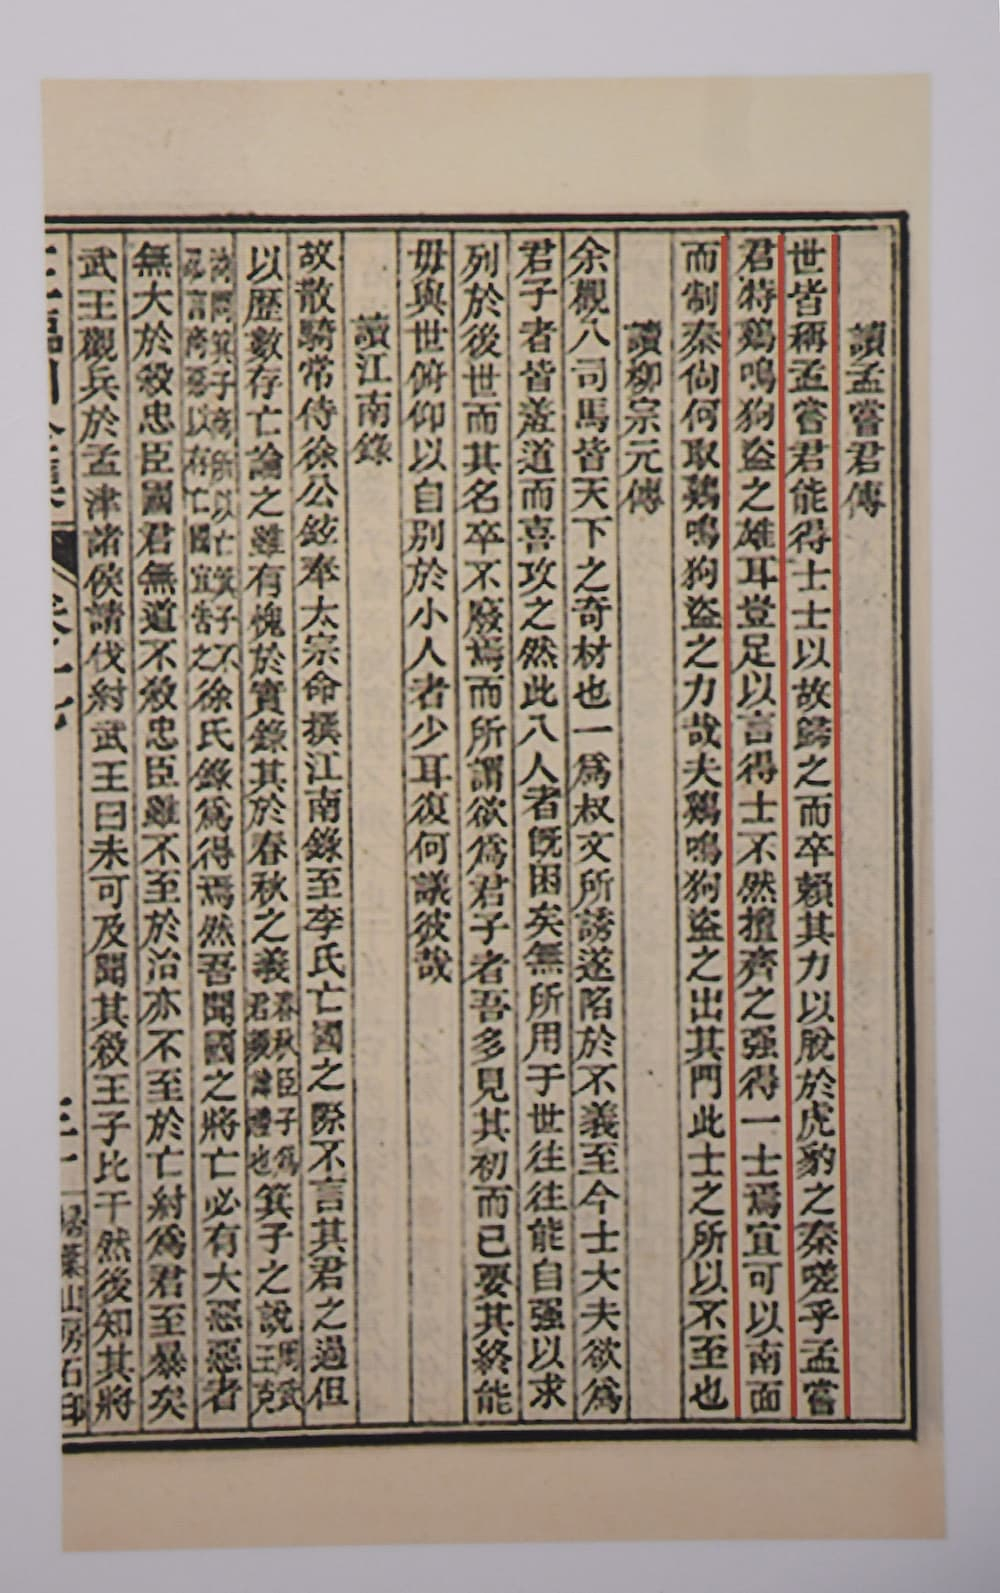 讀孟嘗君傳
世皆稱孟嘗君能得士士以故歸之而卒賴其力以脫於虎豹之秦嗟乎孟嘗
君特鷄鳴狗盜之雄耳豈足以言得士不然擅齊之强得一士焉宜可以南面
而制秦尙何取鷄鳴狗盜之力哉夫鷄鳴狗盜之出其門此士之所以不至也
讀柳宗元傳
余觀八司馬皆天下之奇材也一爲叔文所誘遂陷於不義至今士大夫欲爲
君子者皆羞道而喜攻之然此八人者旣困矣無所用于世往往能自强以求
列於後世而其名卒不廢焉而所謂欲爲君子者吾多見其初而已要其終能
毋與世俯仰以自別於小人者少耳復何議彼哉
讀江南錄
故散騎常侍徐公鉉奉太宗命撰江南錄至李氏亡國之際不言其君之過但
以歷數存亡論之雖有愧於實錄其於春秋之義春秋臣子爲君親諱禮也箕子之說周武王克
商問箕子商所以亡箕子不忍言商惡以存亡國宜告之徐氏錄爲得焉然吾聞國之將亡必有大惡惡者
無大於殺忠臣國君無道不殺忠臣雖不至於治亦不至於亡紂爲君至暴矣
武王觀兵於孟津諸侯請伐紂武王曰未可及聞其殺王子比干然後知其將
掃葉山房石印